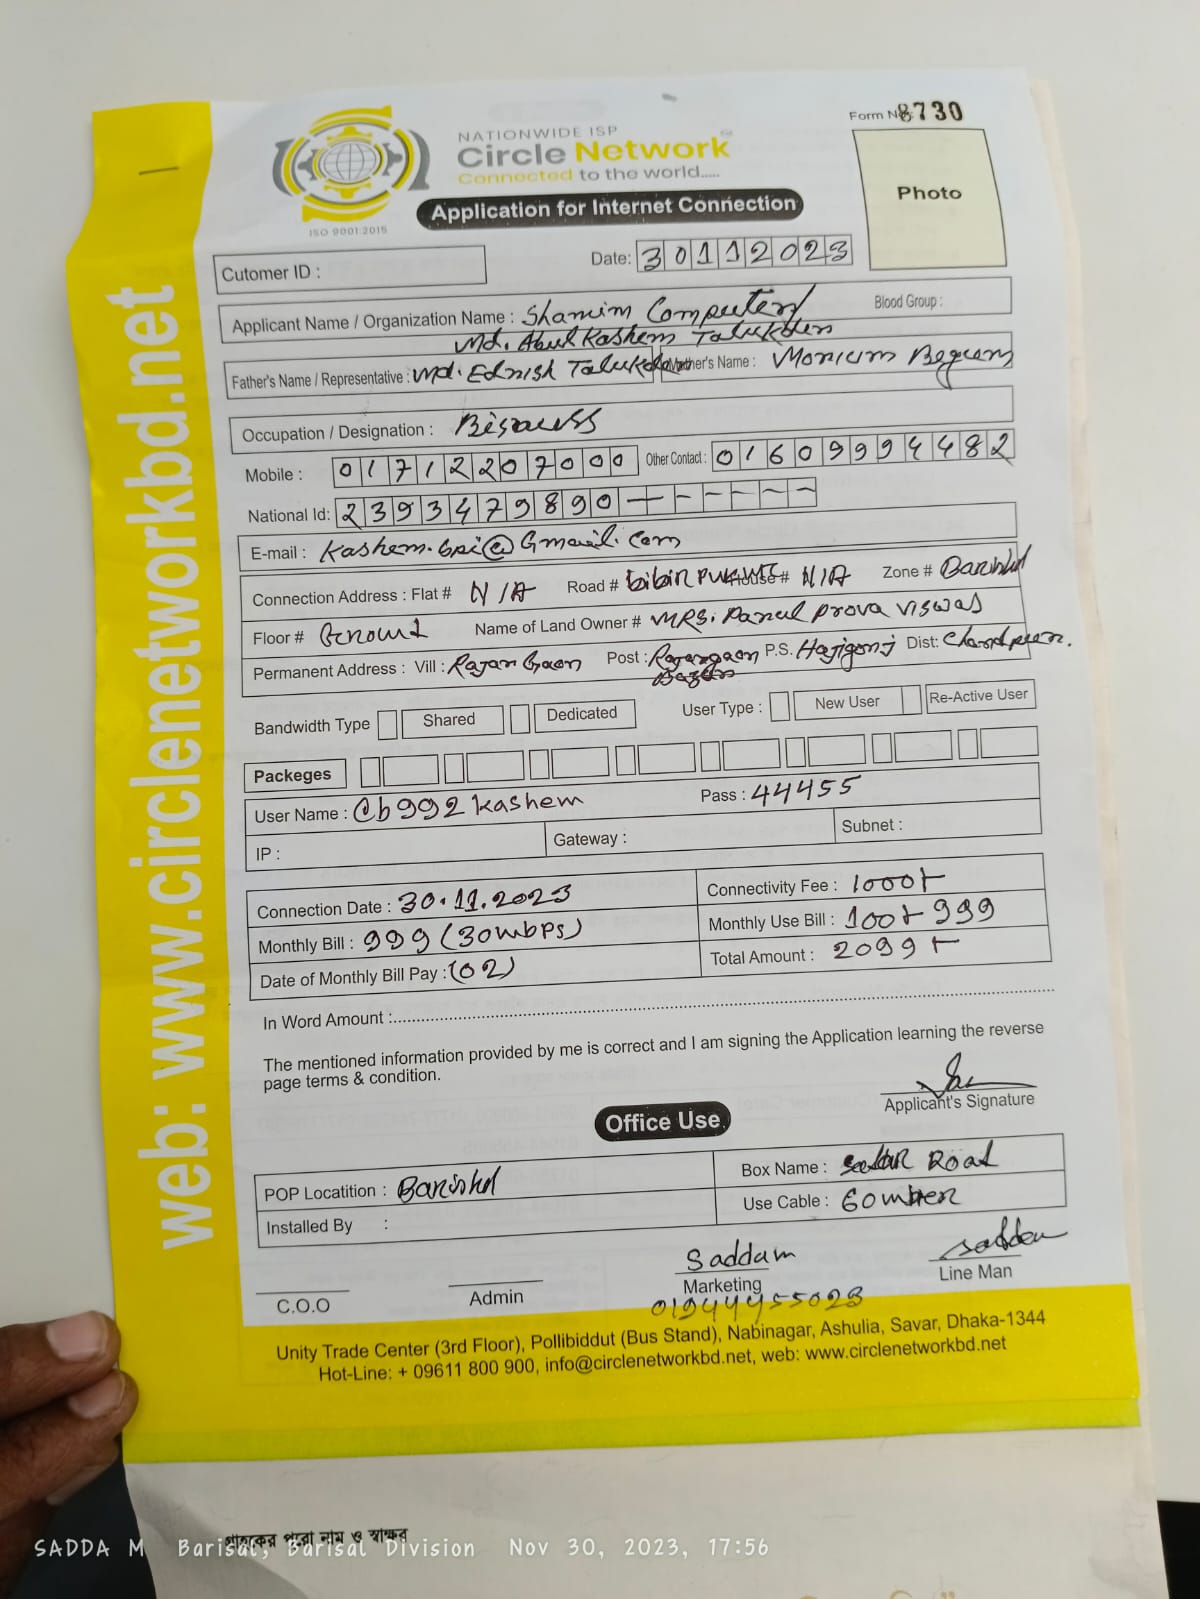 Form No: 8730
NATIONWIDE ISP
Circle Network
Connected to the world.....
ISO 9001:2015
Application for Internet Connection
Photo
Cutomer ID :
Date: 30112023
Applicant Name / Organization Name : Shamim Computer
Blood Group :
Md. Abul Kashem Talukder
Father's Name / Representative : Md. Edrish Talukder Mother's Name : Monium Begum
Occupation / Designation :
Mobile : 01712207000 Other Contact : 01609994482
National Id: 2393479890
E-mail : Kashem.bpi@Gmail.com
Connection Address : Flat # N/A Road # bibir House # N/A Zone # Barishal
Floor # Ground Name of Land Owner # MRS. Parul prova viswas
Permanent Address : Vill : Rajar Gaon Post : Rajargaon Bazar P.S. Hajigonj Dist: Chandpur.
Bandwidth Type Shared Dedicated User Type : New User Re-Active User
Packeges
User Name : @b992kashem Pass : 44455
IP : Gateway : Subnet :
Connection Date : 30.11.2023 Connectivity Fee : 1000/-
Monthly Bill : 999 (30mbps) Monthly Use Bill : 100/- 999
Date of Monthly Bill Pay : (02) Total Amount : 2099/-
In Word Amount :
The mentioned information provided by me is correct and I am signing the Application learning the reverse
page terms & condition.
Applicant's Signature
Office Use
POP Locatition : Barishal Box Name : Sadar Road
Installed By : Use Cable : 60 miter
Saddam saddam
C.O.O Admin Marketing Line Man
01944455023
Unity Trade Center (3rd Floor), Pollibiddut (Bus Stand), Nabinagar, Ashulia, Savar, Dhaka-1344
Hot-Line: + 09611 800 900, info@circlenetworkbd.net, web: www.circlenetworkbd.net
web: www.circlenetworkbd.net
গ্রাহকের পুরো নাম ও স্বাক্ষর
SADDA M Barisal, Barisal Division Nov 30, 2023, 17:56